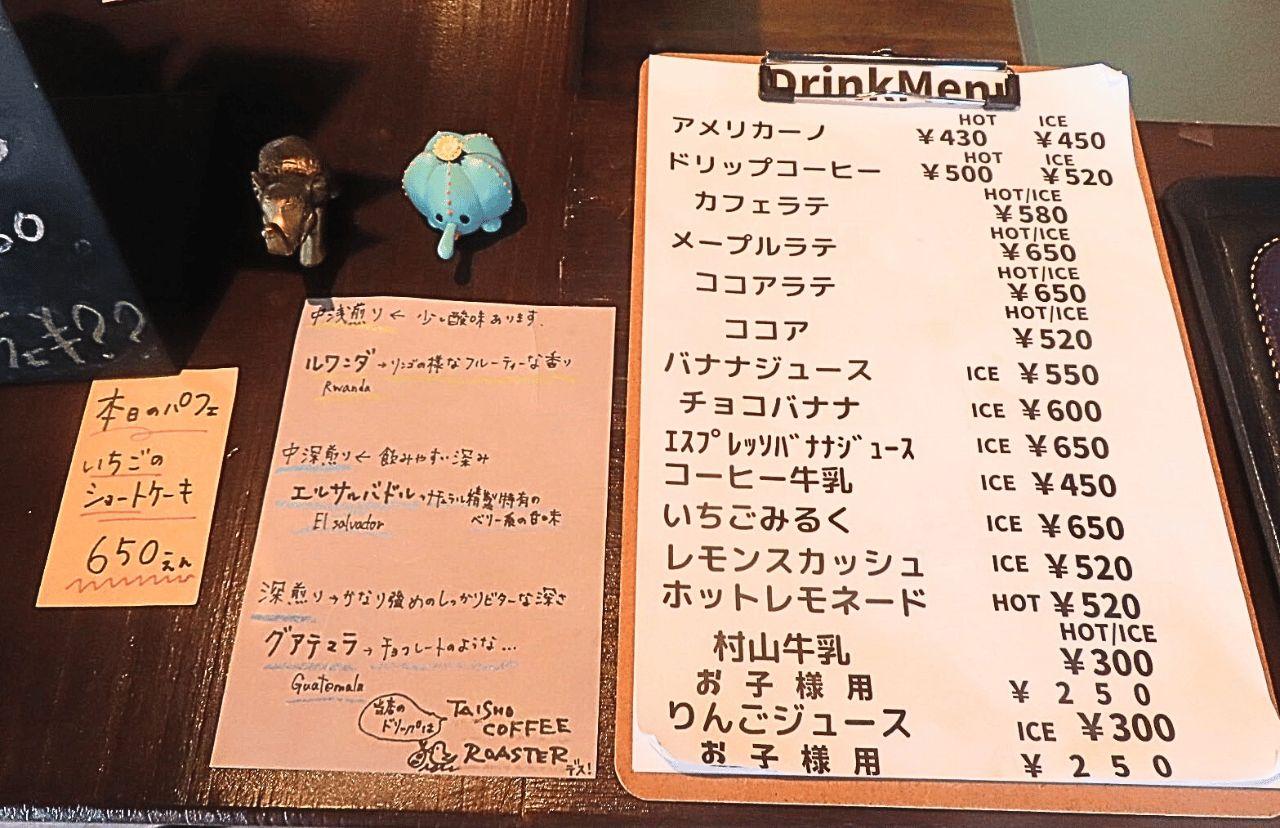 本日のパフェ
いちごの
ショートケーキ
650えん
中浅煎り ← 少し酸味あります.
ルワンダ→リンゴの様なフルーティーな香り
Rwanda
中深煎り ← 飲みやすい深み
エルサルバドル→ナチュラル精製特有の
ベリー系の甘味
El salvador
深煎り→かなり強めのしっかりビターな深さ
グアテマラ→チョコレートのような...
Guatemala
当店の
ドリップは
TAISHO
COFFEE
ROASTER
デス!
DrinkMenu
アメリカーノ HOT ¥430 ICE ¥450
ドリップコーヒー HOT ¥500 ICE ¥520
カフェラテ HOT/ICE ¥580
メープルラテ HOT/ICE ¥650
ココアラテ HOT/ICE ¥650
ココア HOT/ICE ¥520
バナナジュース ICE ¥550
チョコバナナ ICE ¥600
ｴｽﾌﾟﾚｯｿﾊﾞﾅﾅｼﾞｭｰｽ ICE ¥650
コーヒー牛乳 ICE ¥450
いちごみるく ICE ¥650
レモンスカッシュ ICE ¥520
ホットレモネード HOT ¥520
村山牛乳 HOT/ICE ¥300
お子様用 ¥250
りんごジュース ICE ¥300
お子様用 ¥250